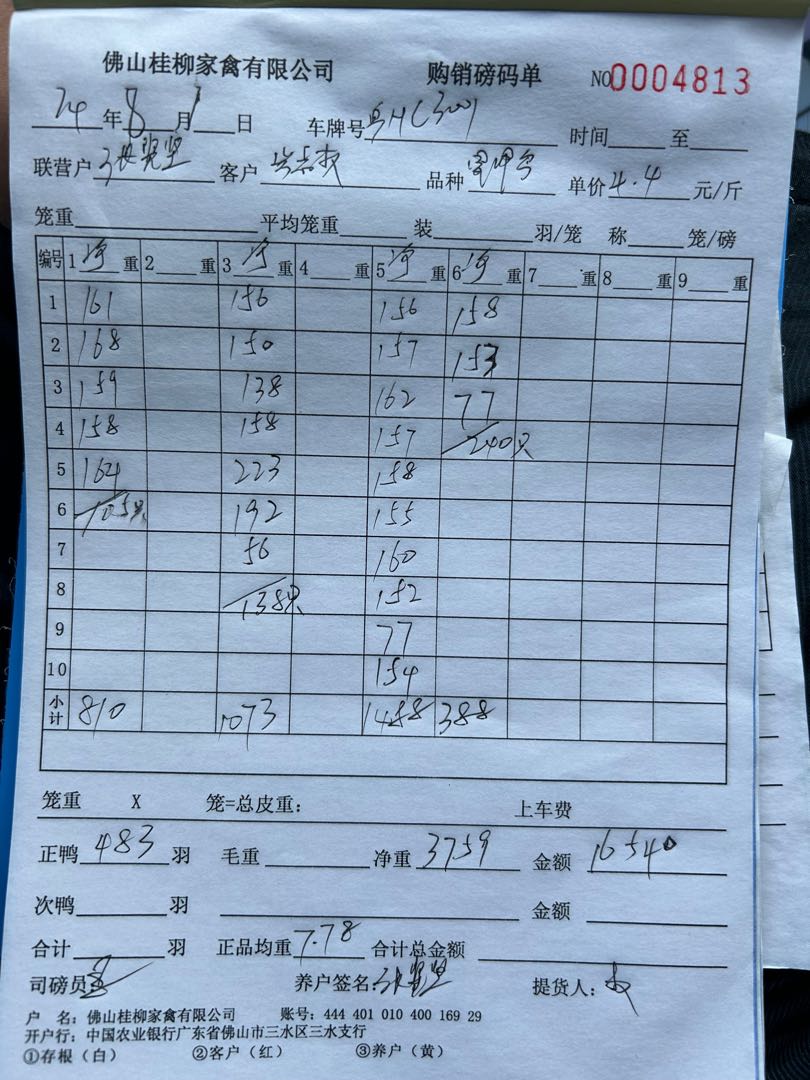 佛山桂柳家禽有限公司 购销磅码单 NO 0004813
24 年 8 月 1 日 车牌号 时间 至
联营户 客户 品种 单价 4.4 元/斤
笼重 平均笼重 装 羽/笼 称 笼/磅
编号 1 净 重 2 重 3 净 重 4 重 5 净 重 6 净 重 7 重 8 重 9 重
1 161 156 156 158
2 168 150 157 153
3 159 138 162 77
4 158 158 157 240只
5 164 223 158
6 105只 192 155
7 56 160
8 138只 152
9 77
10 154
小计 810 1073 1488 388
笼重 X 笼=总皮重: 上车费
正鸭 483 羽 毛重 净重 3759 金额 16540
次鸭 羽 金额
合计 羽 正品均重 7.78 合计总金额
司磅员 养户签名 提货人:
户 名: 佛山桂柳家禽有限公司 账号: 444 401 010 400 169 29
开户行: 中国农业银行广东省佛山市三水区三水支行
①存根(白) ②客户(红) ③养户(黄)